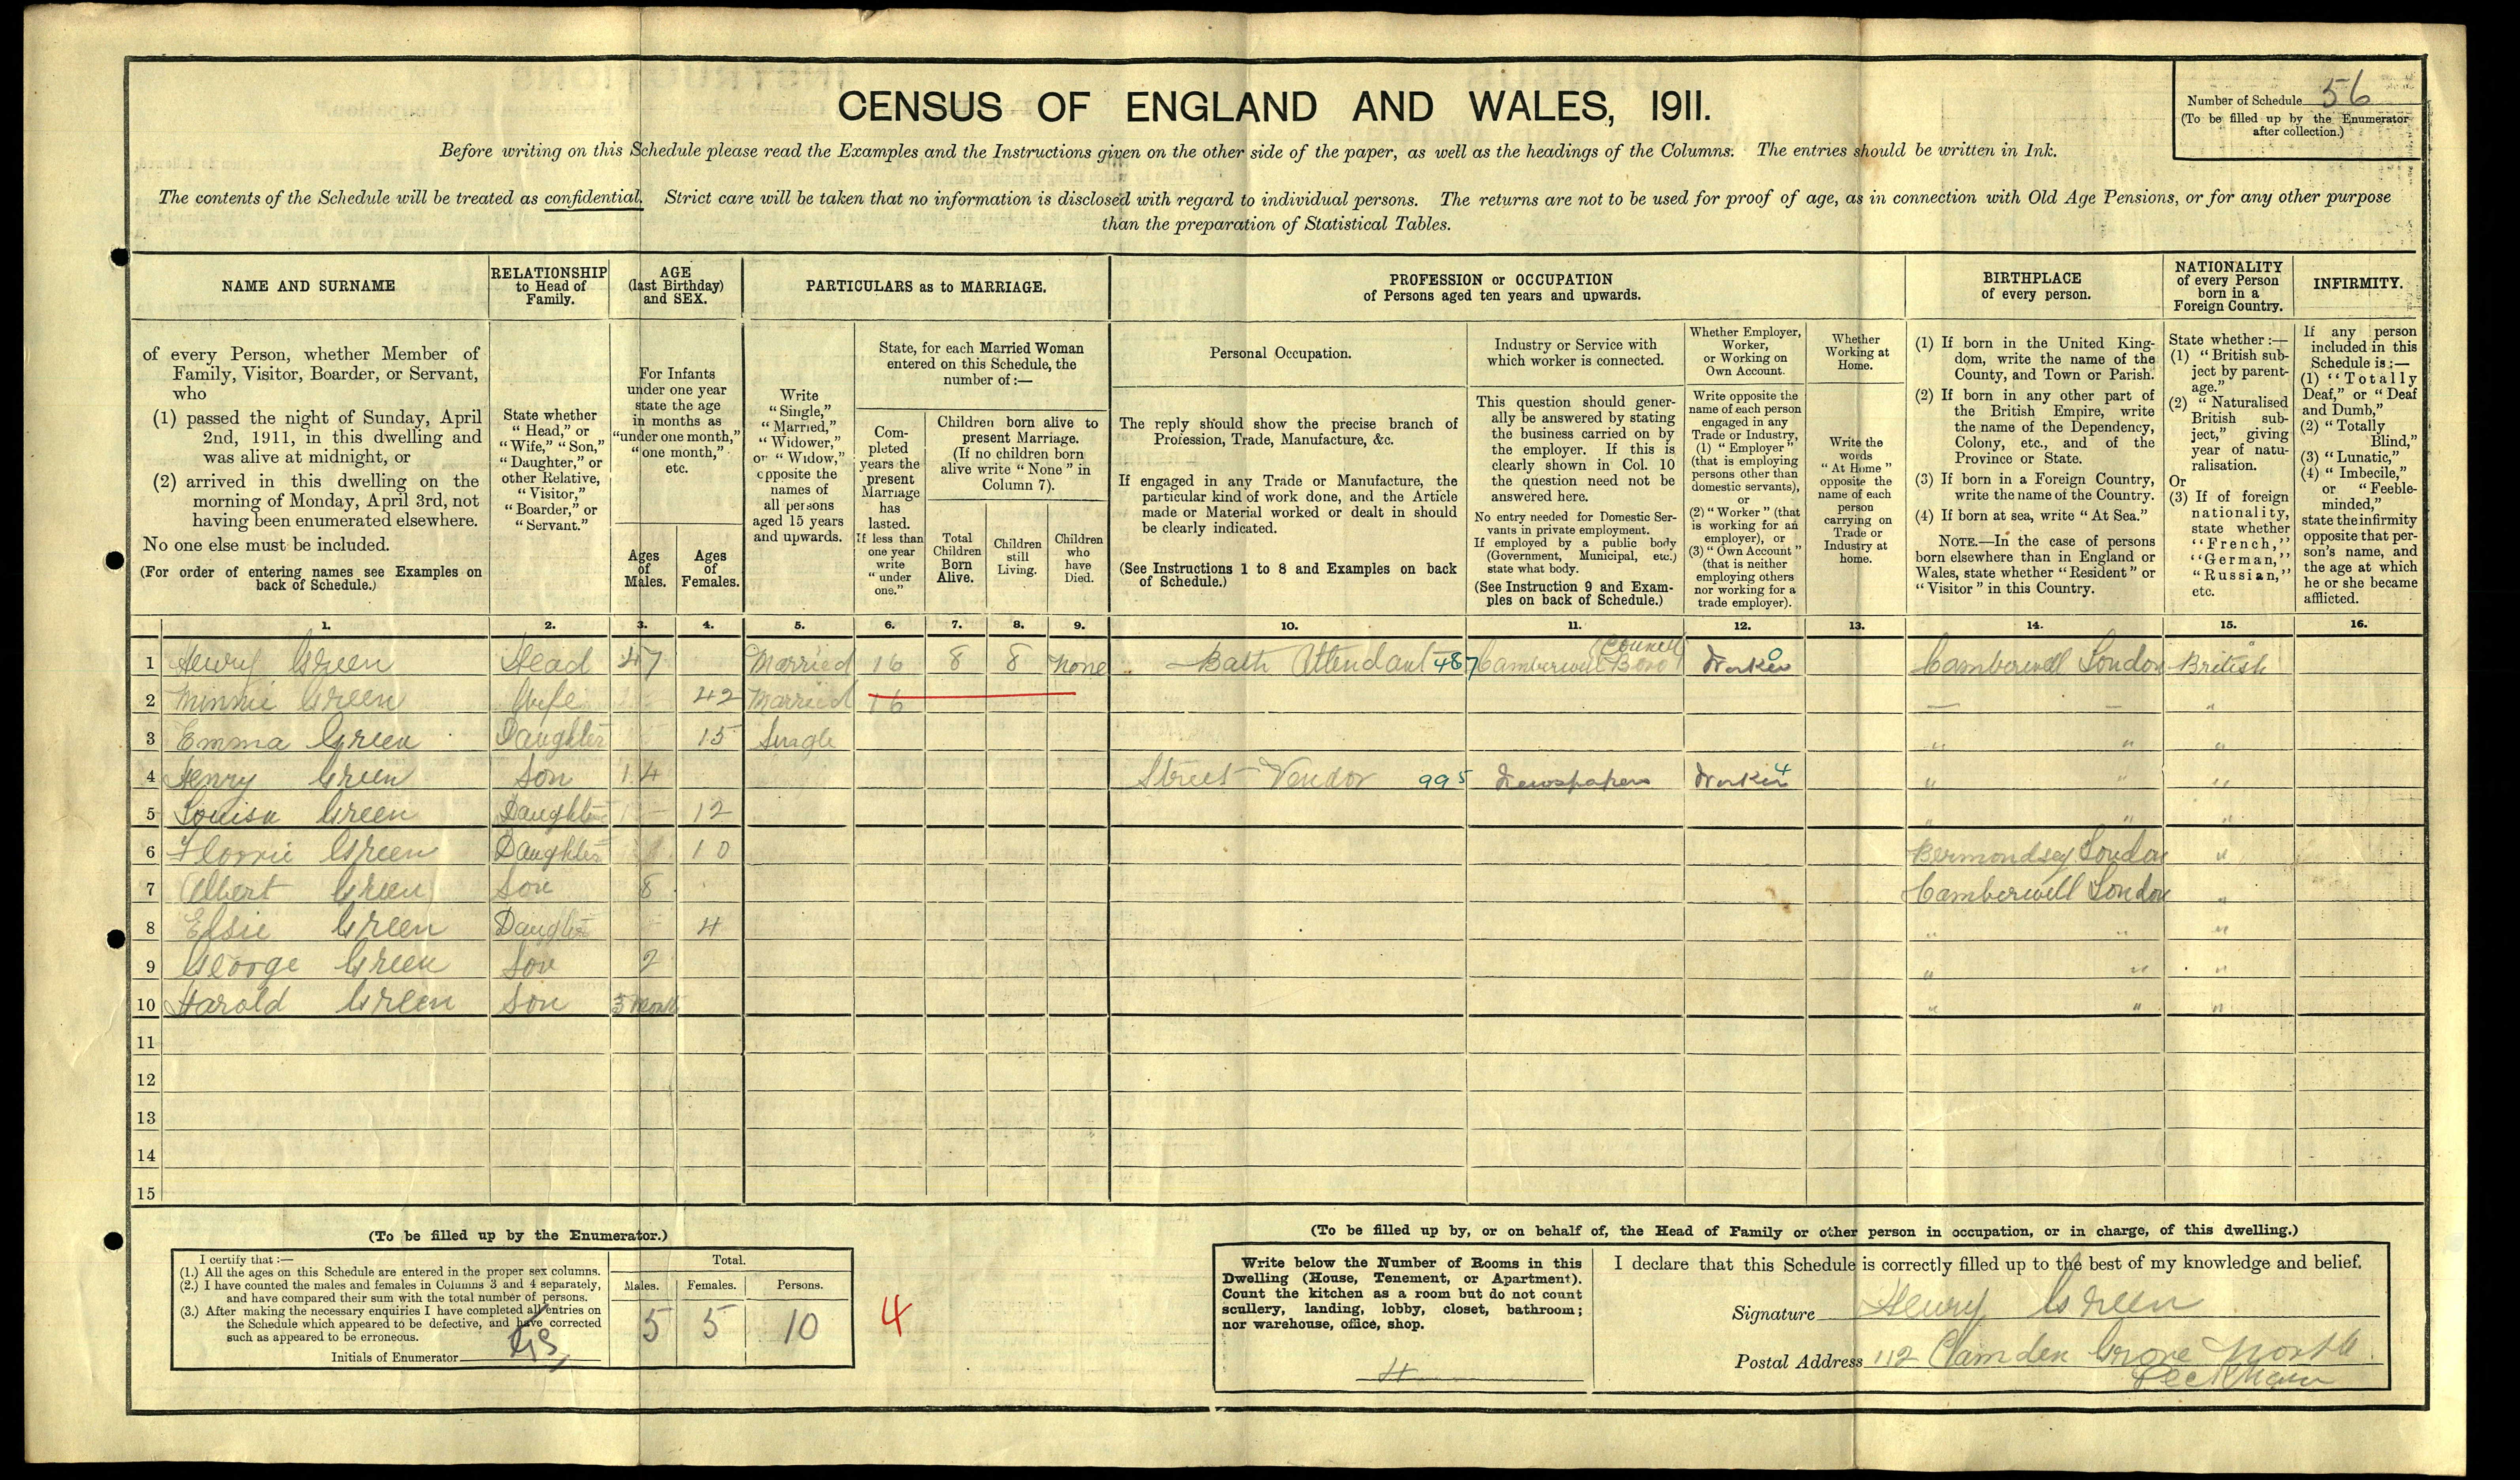 CENSUS OF ENGLAND AND WALES, 1911.
Number of Schedule 56
(To be filled up by the Enumerator
after collection.)
Before writing on this Schedule please read the Examples and the Instructions given on the other side of the paper, as well as the headings of the Columns. The entries should be written in Ink.
The contents of the Schedule will be treated as confidential. Strict care will be taken that no information is disclosed with regard to individual persons. The returns are not to be used for proof of age, as in connection with Old Age Pensions, or for any other purpose
than the preparation of Statistical Tables.
NAME AND SURNAME
of every Person, whether Member of
Family, Visitor, Boarder, or Servant,
who
(1) passed the night of Sunday, April
2nd, 1911, in this dwelling and
was alive at midnight, or
(2) arrived in this dwelling on the
morning of Monday, April 3rd, not
having been enumerated elsewhere.
No one else must be included.
(For order of entering names see Examples on
back of Schedule.)
RELATIONSHIP
to Head of
Family.
State whether
"Head," or
"Wife," "Son,"
"Daughter," or
other Relative,
"Visitor,"
"Boarder," or
"Servant."
AGE
(last Birthday)
and SEX.
For Infants
under one year
state the age
in months as
"under one month,"
"one month,"
etc.
Ages
of
Males.
Ages
of
Females.
PARTICULARS as to MARRIAGE.
Write
"Single,"
"Married,"
"Widower,"
or "Widow,"
opposite the
names of
all persons
aged 15 years
and upwards.
State, for each Married Woman
entered on this Schedule, the
number of:—
Com-
pleted
years the
present
Marriage
has
lasted.
If less than
one year
write
"under
one."
Children born alive to
present Marriage.
(If no children born
alive write "None" in
Column 7).
Total
Children
Born
Alive.
Children
still
Living.
Children
who
have
Died.
PROFESSION or OCCUPATION
of Persons aged ten years and upwards.
Personal Occupation.
The reply should show the precise branch of
Profession, Trade, Manufacture, &c.
If engaged in any Trade or Manufacture, the
particular kind of work done, and the Article
made or Material worked or dealt in should
be clearly indicated.
(See Instructions 1 to 8 and Examples on back
of Schedule.)
Industry or Service with
which worker is connected.
This question should gener-
ally be answered by stating
the business carried on by
the employer. If this is
clearly shown in Col. 10
the question need not be
answered here.
No entry needed for Domestic Ser-
vants in private employment.
If employed by a public body
(Government, Municipal, etc.)
state what body.
(See Instruction 9 and Exam-
ples on back of Schedule.)
Whether Employer,
Worker,
or Working on
Own Account.
Write opposite the
name of each person
engaged in any
Trade or Industry,
(1) "Employer"
(that is employing
persons other than
domestic servants),
or
(2) "Worker" (that
is working for an
employer), or
(3) "Own Account"
(that is neither
employing others
nor working for a
trade employer).
Whether
Working at
Home.
Write the
words
"At Home"
opposite the
name of each
person
carrying on
Trade or
Industry at
home.
BIRTHPLACE
of every person.
(1) If born in the United King-
dom, write the name of the
County, and Town or Parish.
(2) If born in any other part of
the British Empire, write
the name of the Dependency,
Colony, etc., and of the
Province or State.
(3) If born in a Foreign Country,
write the name of the Country.
(4) If born at sea, write "At Sea."
NOTE.—In the case of persons
born elsewhere than in England or
Wales, state whether "Resident" or
"Visitor" in this Country.
NATIONALITY
of every Person
born in a
Foreign Country.
State whether:—
(1) "British sub-
ject by parent-
age."
(2) "Naturalised
British sub-
ject," giving
year of natu-
ralisation.
Or
(3) If of foreign
nationality,
state whether
"French,"
"German,"
"Russian,"
etc.
INFIRMITY.
If any person
included in this
Schedule is:—
(1) "Totally
Deaf," or "Deaf
and Dumb,"
(2) "Totally
Blind,"
(3) "Lunatic,"
(4) "Imbecile,"
or "Feeble-
minded,"
state the infirmity
opposite that per-
son's name, and
the age at which
he or she became
afflicted.
1. 2. 3. 4. 5. 6. 7. 8. 9. 10. 11. 12. 13. 14. 15. 16.
1 Henry Green Head 47 Married 16 8 8 None Bath Attendant 487 Camberwell Boro Council Worker 0 Camberwell London British
2 Minnie Green Wife 42 Married 16 — — "
3 Emma Green Daughter 15 Single " " "
4 Henry Green Son 14 Street Vendor 995 Newspapers Worker 4 " " "
5 Louisa Green Daughter 12 " " "
6 Florrie Green Daughter 10 Bermondsey London "
7 Albert Green Son 8 Camberwell London "
8 Elsie Green Daughter 4 " " "
9 George Green Son 2 " " "
10 Harold Green Son 5 Months " " "
11
12
13
14
15
(To be filled up by the Enumerator.)
I certify that:—
(1.) All the ages on this Schedule are entered in the proper sex columns.
(2.) I have counted the males and females in Columns 3 and 4 separately,
and have compared their sum with the total number of persons.
(3.) After making the necessary enquiries I have completed all entries on
the Schedule which appeared to be defective, and have corrected
such as appeared to be erroneous.
Initials of Enumerator
Total.
Males. Females. Persons.
5 5 10
4
(To be filled up by, or on behalf of, the Head of Family or other person in occupation, or in charge, of this dwelling.)
Write below the Number of Rooms in this
Dwelling (House, Tenement, or Apartment).
Count the kitchen as a room but do not count
scullery, landing, lobby, closet, bathroom;
nor warehouse, office, shop.
4
I declare that this Schedule is correctly filled up to the best of my knowledge and belief.
Signature Henry Green
Postal Address 112 Camden Grove North
Peckham